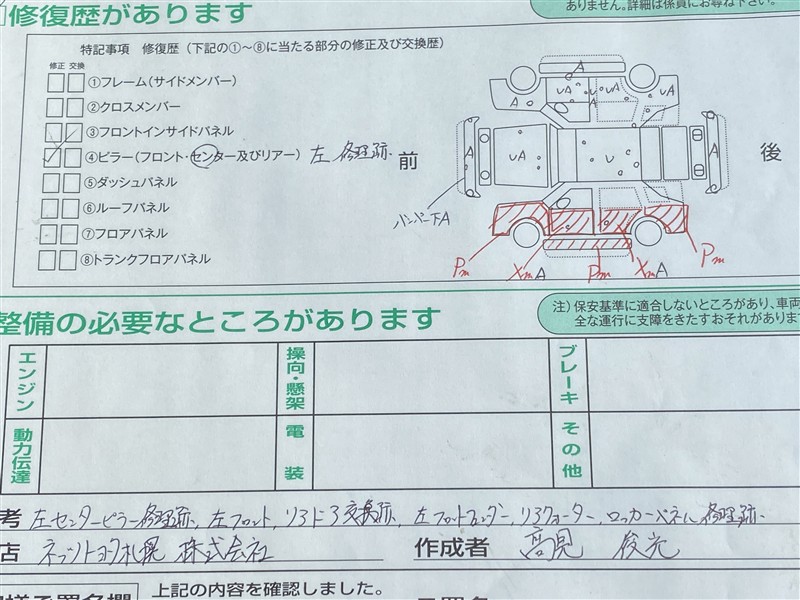 修復歴があります
ありません。詳細は係員にお尋ね下さい。
特記事項 修復歴（下記の①〜⑧に当たる部分の修正及び交換歴）
修正 交換
①フレーム（サイドメンバー）
②クロスメンバー
③フロントインサイドパネル
④ピラー（フロント・センター及びリアー） 左 修理跡
⑤ダッシュパネル
⑥ルーフパネル
⑦フロアパネル
⑧トランクフロアパネル
前
後
A
A UA UA UA UA
A UA U A
バンパー下A
Pm Xm A Pm Xm A Pm
整備の必要なところがあります
注）保安基準に適合しないところがあり、車両
全な運行に支障をきたすおそれがあります
エンジン 操向・懸架 ブレーキ
動力伝達 電装 その他
考 左センターピラー修理跡、左フロント、リヤドア交換跡、左フロントフェンダー、リヤクォーター、ロッカーパネル修理跡
店 ネッツトヨタ札幌 株式会社 作成者 高見 俊光
上記の内容を確認しました。